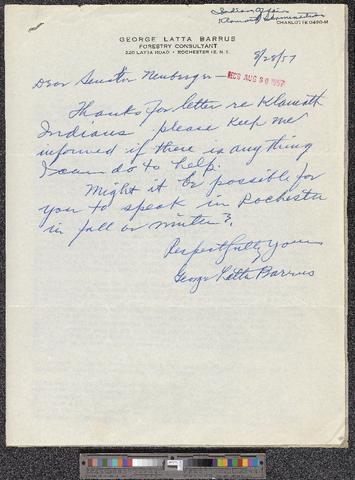 Indian Affairs
Klamath Termination
CHARLOTTE 0490-M
GEORGE LATTA BARRUS
FORESTRY CONSULTANT
220 LATTA ROAD • ROCHESTER 12, N.Y.
8/28/57
REC'D AUG 30 1957
Dear Senator Neuberger—
Thanks for letter re Klamath
Indians. please keep me
informed if there is anything
I can do to help.
Might it be possible for
you to speak in Rochester
in fall or winter?
Respectfully Yours
George Latta Barrus